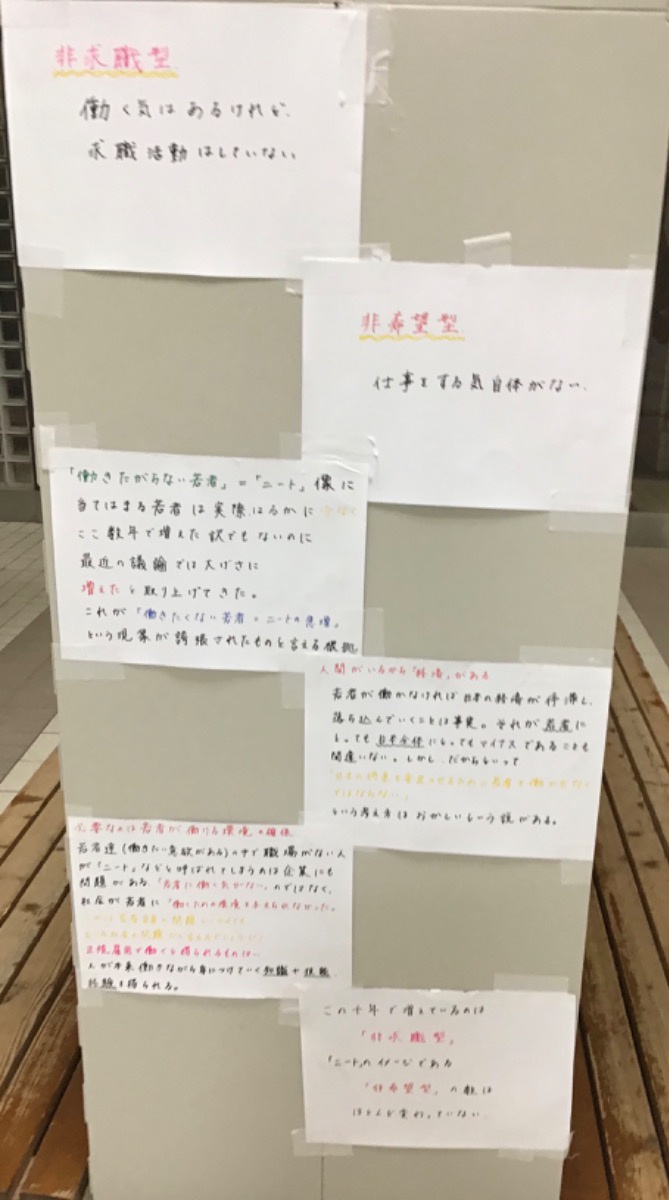 非求職型
働く気はあるけれど、
求職活動はしていない
非希望型
仕事をする気自体がない。
「働きたがらない若者」=「ニート」像に
当てはまる若者は実際はるかに少なく
ここ数年で増えた訳でもないのに
最近の議論では大げさに
増えたと取り上げてきた。
これが「働きたくない若者=ニートの急増」
という現象が誇張されたものと言える根拠
人間がいるから「経済」がある
若者が働かなければ日本の経済が停滞し、
落ち込んでいくことは事実。それが若者に
とっても日本全体にとってもマイナスであることも
間違いない。しかし、だからといって
「日本の将来を安定させるために若者を働かせなく
てはならない」
という考え方はおかしいという説がある。
必要なのは若者が「働ける環境」の確保
若者達(働きたい意欲がある)の中で職場がない人
が「ニート」などと呼ばれてしまうのは企業にも
問題がある。「若者に働く気がない」のではなく、
社会が若者に「働くための環境を与えられなかった。
正規雇用で働くと得られるものは…
人が本来働きながら身につけていく知識や技能、
経験も得られる。
この十年で増えているのは
「非求職型」
「ニート」のイメージである
「非希望型」の数は
ほとんど変わっていない